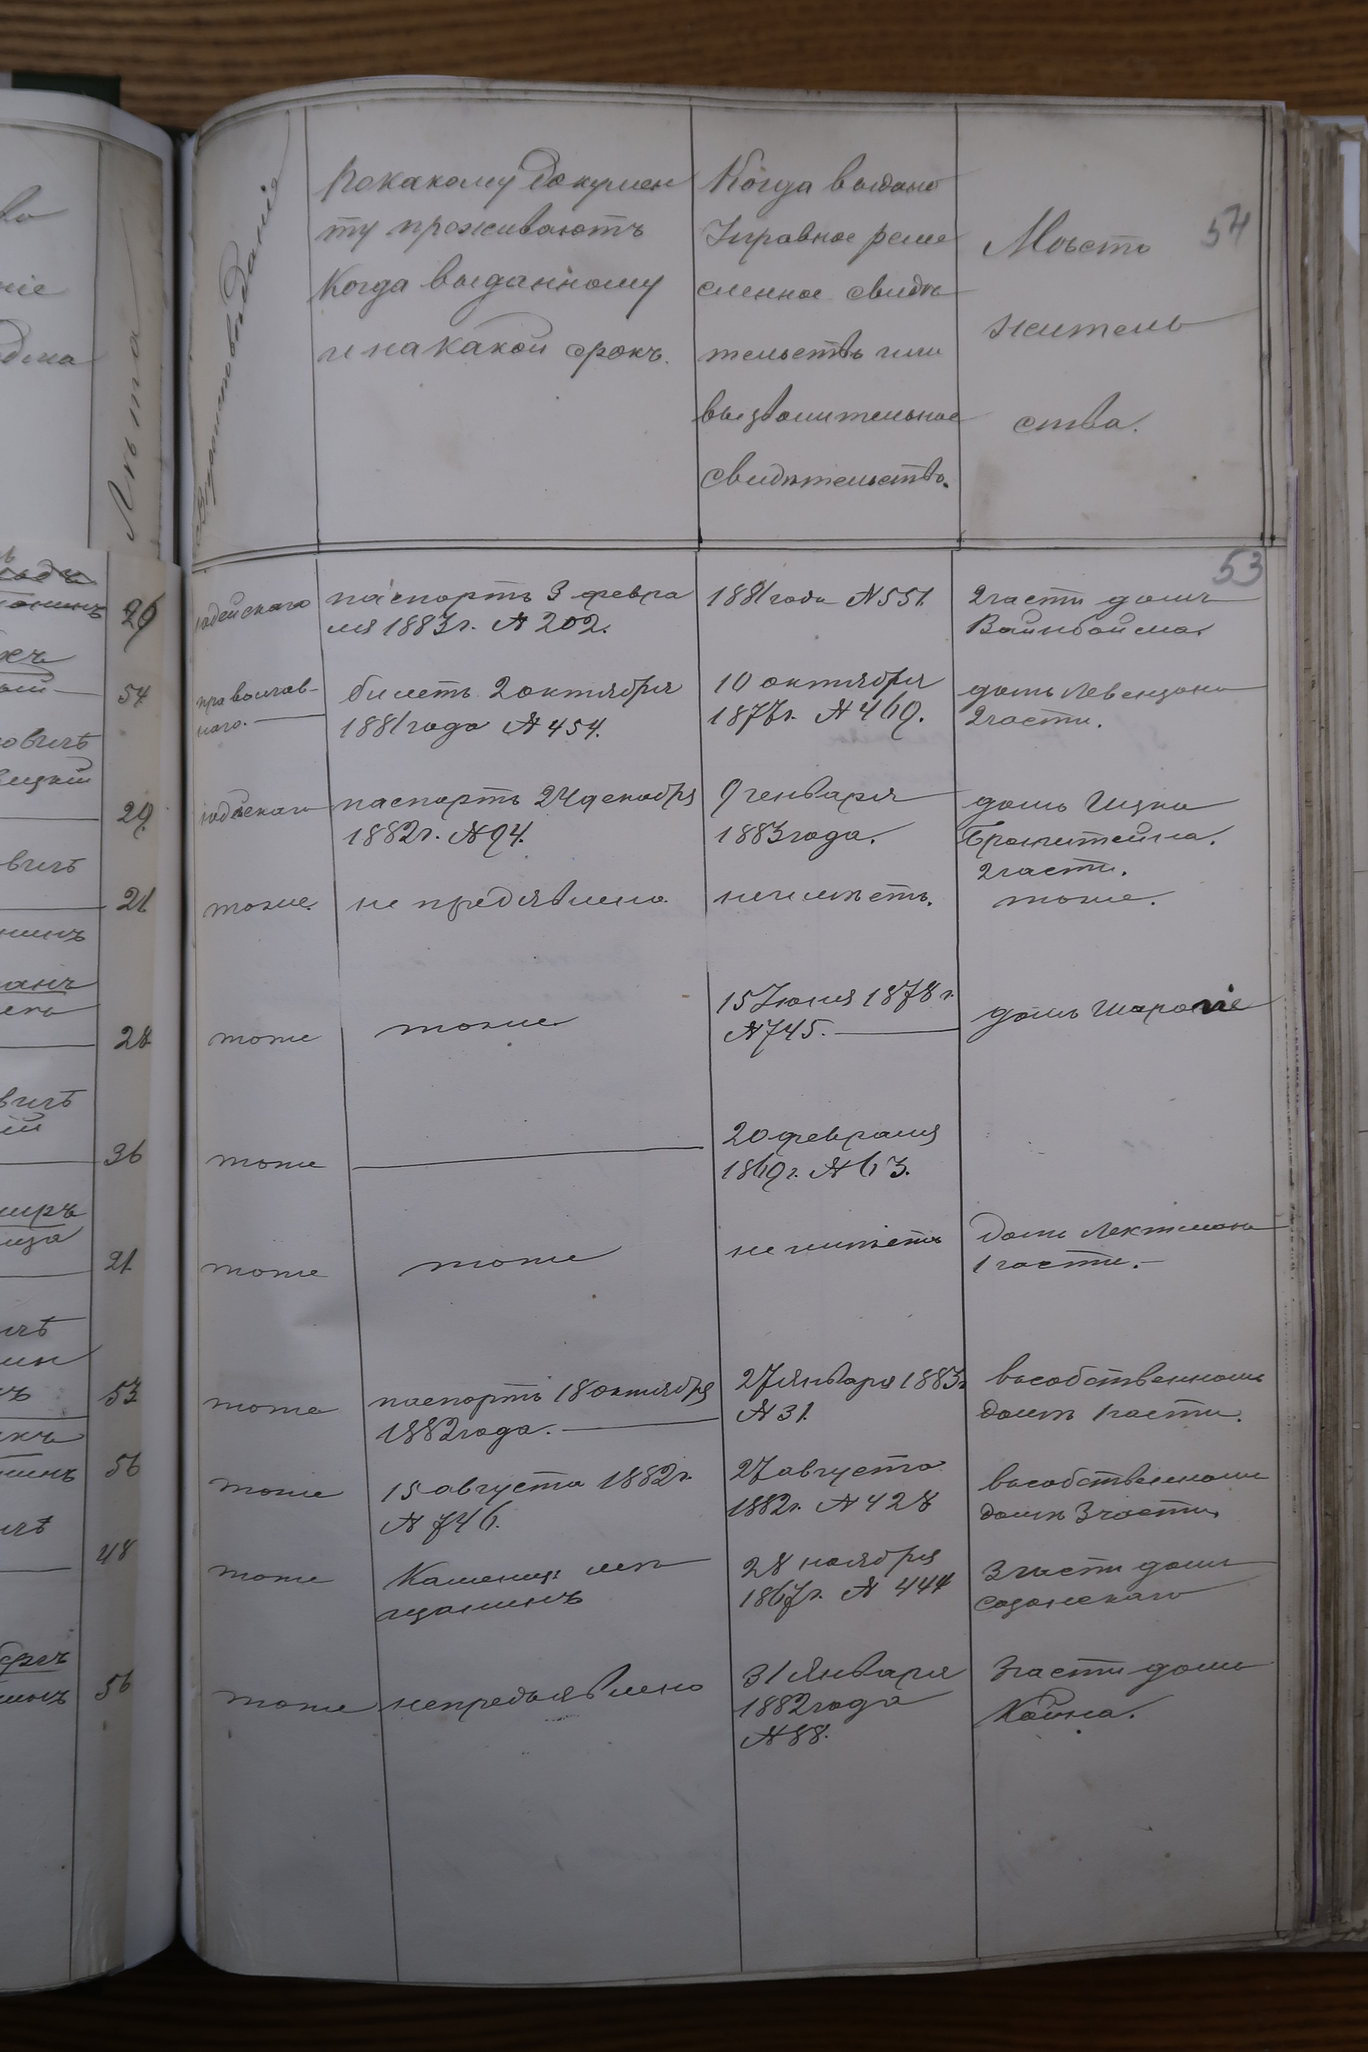 54
Лѣта
Вѣроисповѣданія
По какому докумен
ту проживаютъ
Когда выданному
и на какой срокъ.
Когда выдано
Управное реме
сленное свидѣ
тельство или
вызволительное
свидѣтельство.
Мѣсто
житель
ства.
53
26
іюдейскаго
паспортъ 3 февра
ля 1883 г. № 202.
1881 года № 551.
2 части домъ
Вайнбойма.
54
православ-
наго.
билетъ 2 октября
1881 года № 454.
10 октября
1877 г. № 469.
домъ Левензона
2 части.
29.
іюдѣскаго
паспортъ 24 декабря
1882 г. № 94.
9 генваря
1883 года.
домъ Ицка
Бронштейна.
2 части.
21
тоже.
не предявлено
не имѣетъ.
тоже.
28
тоже
тоже.
15 Іюня 1878 г.
№ 745.
домъ
36
тоже
20 февраля
1869 г. № 63.
21.
тоже
тоже
не имѣетъ
домъ Лектмана
1 части.
53
тоже
паспортъ 18 октября
1882 года.
27 января 1883 г
№ 31.
въ собственномъ
домѣ 1 части.
56
тоже
15 августа 1882 г.
№ 746.
27 августа
1882 г. № 428
въ собственномъ
домѣ 3 части.
48
тоже
Каменец мѣ
щанинъ
28 ноября
1867 г. № 444
3 части домъ
56
тоже
непредъявлено
31 Января
1882 года
№ 88.
3 части домъ